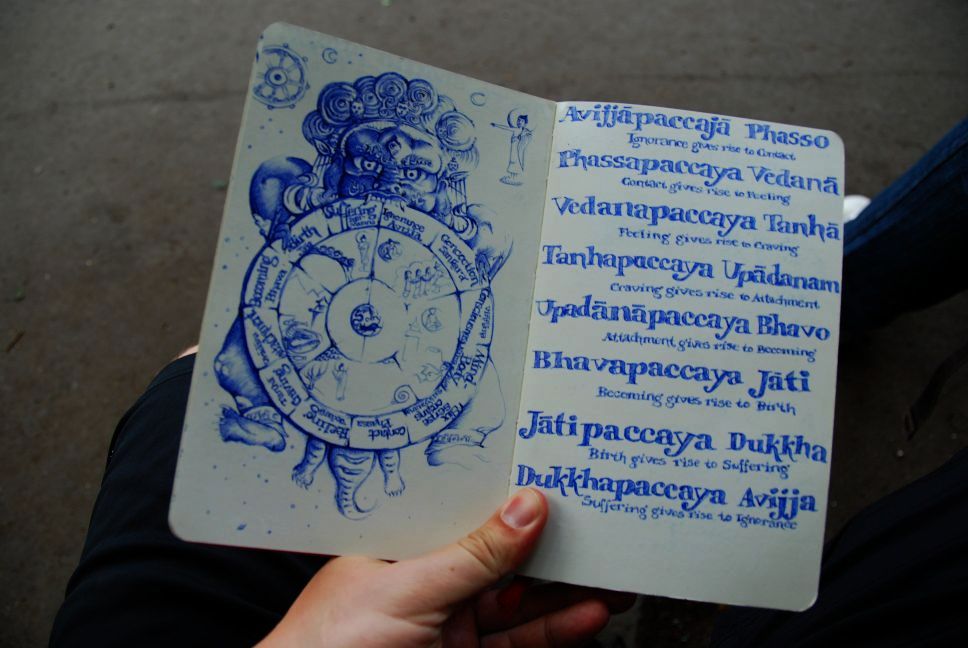 Suffering
Ignorance
Generation
Sankara
Consciousness
Mind-
Body
Sense
organs
Contact
Phassa
Feeling
Vedana
Craving
Tanha
Attachment
Becoming
Bhava
Birth
Avijjāpaccajā Phasso
Ignorance gives rise to Contact
Phassapaccaya Vedanā
Contact gives rise to Feeling
Vedanapaccaya Tanhā
Feeling gives rise to Craving
Tanhapaccaya Upādanam
Craving gives rise to Attachment
Upadānāpaccaya Bhavo
Attachment gives rise to Becoming
Bhavapaccaya Jāti
Becoming gives rise to Birth
Jātipaccaya Dukkha
Birth gives rise to Suffering
Dukkhapaccaya Avijja
Suffering gives rise to Ignorance